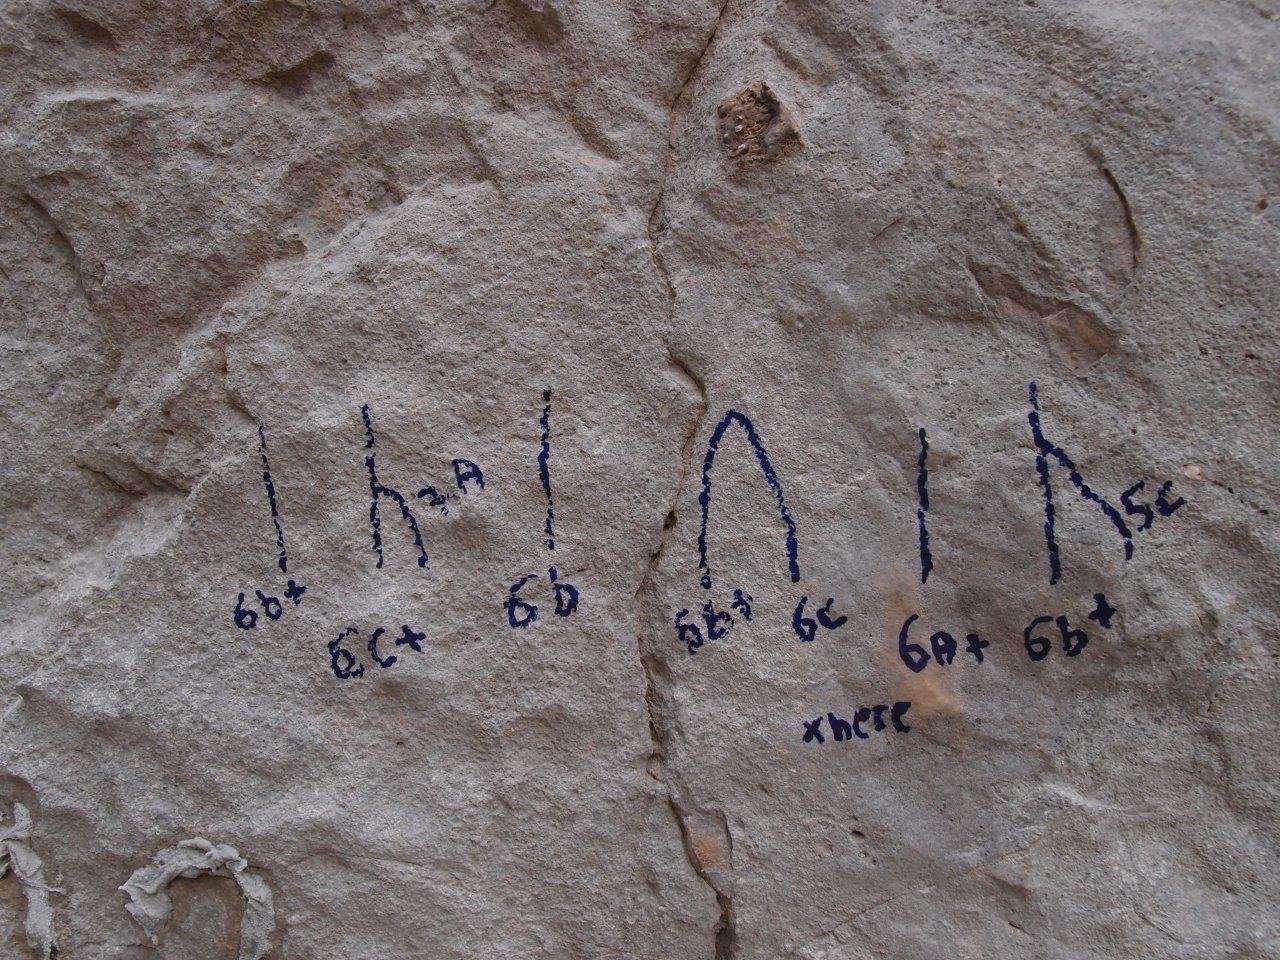 7A
5c
6b+
6c+
6b
6b+
6c
6A+
6b+
xhere